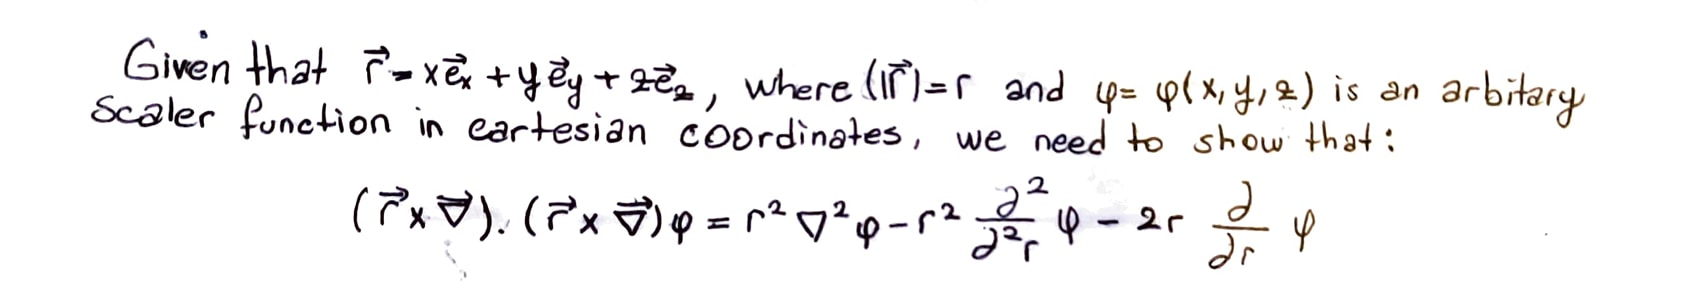 Given that r⃗ = xe⃗ₓ + ye⃗_y + ze⃗_z, where (|r⃗|)=r and φ= φ(x,y,z) is an arbitary
Scaler function in cartesian coordinates, we need to show that:
(r⃗ x ∇⃗).(r⃗ x ∇⃗)φ = r² ∇² φ - r² ∂²/∂²r φ - 2r ∂/∂r φ